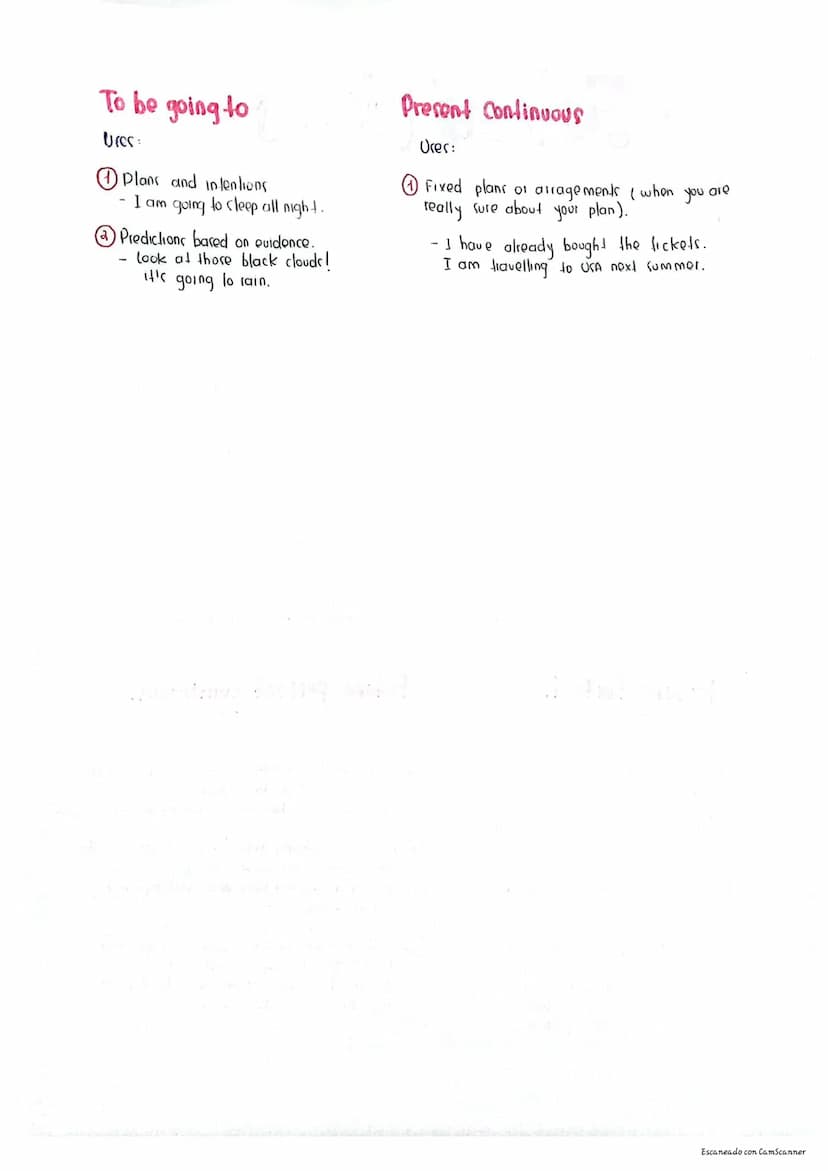 To be going to
Uses:
① Plans and intentions
- I am going to sleep all night.
② Predictions based on evidence.
- Look at those black clouds!
It's going to rain.
Present Continuous
Uses:
① Fixed plans or arragements (when you are
really sure about your plan).
- I have already bought the tickets.
I am travelling to USA next summer.
Escaneado con CamScanner